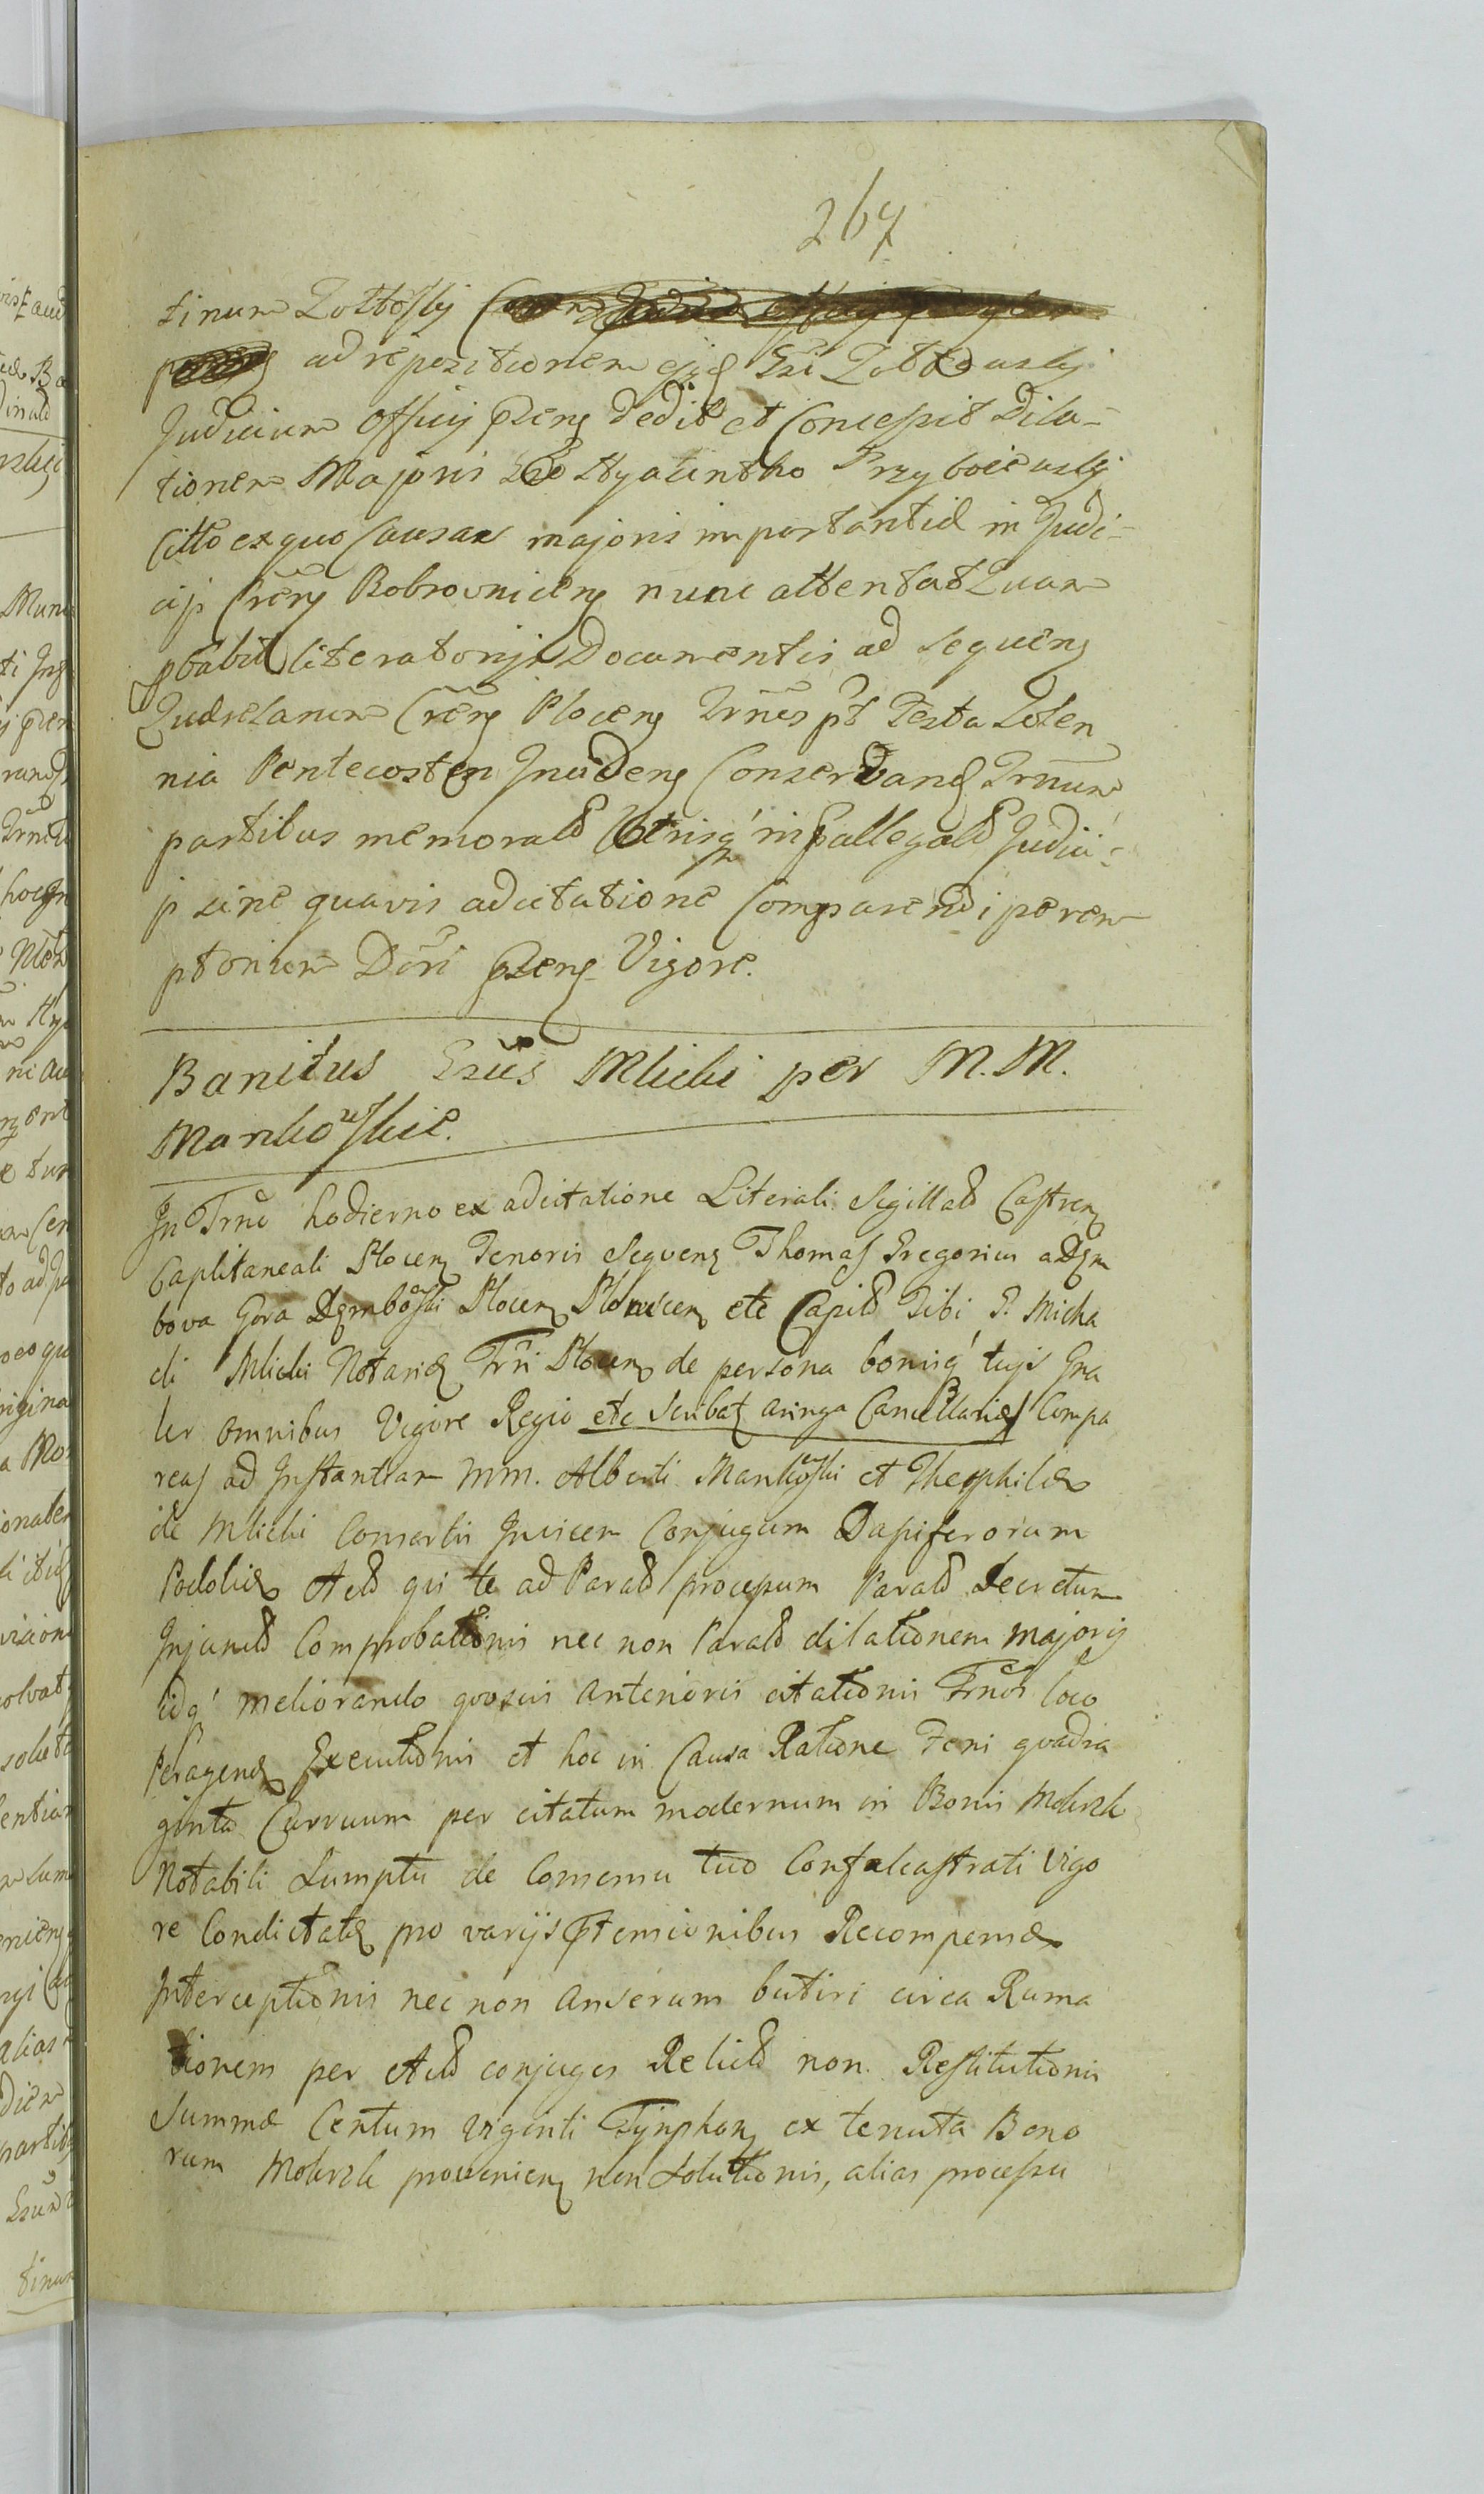 267
tinum Zołtoſkij
ad repositionem ejꝰd Gsi Zołtowskij
Judicium Officij pñens dedit et Conceſsit Dila-
tionem Majoris Gso Hyacintho Przyboiewskij
Citto ex quo Causam majoris importantiæ in Judi-
cijs Crens Bobrovnicens nunc attentat Quam
pbabit literatorijs Documentis ad sequens
Quærelarum Crens Plocens Trnos pt Festa Solen
nia Pentecosten Incidens Conservand Trnum
partibus memorat Utrisq' in præallegat Judici-
js sine quavis adcitatione Comparendi perem
ptorium Dcri pñens Vigore.
Banitus Gsus Mlicki per M. M.
Mankowſkie.
In Trno hodierno ex adcitatione Literali Sigillat Caſtren
Capitaneali Plocen Tenoris Sequens Thomas Gregorius a Dęm
bova Gora Dęmbowſki Plocen Plonscen etc Capit Tibi G. Micha
eli Mlicki Notario Trri Plocen de persona bonisq' tuis Gna
ler omnibus Vigore Regio etc Scribat aringa Cancellariæ Compa
reas ad Inſtantiam MM. Alberti Mankowſki et Theophilæ
de Mlicki Consortis Invicem Conjugum Dapiferorum
Podoliæ Act qui te ad Parat proceſsum Parat Decretum
Injunct Comprobationis nec non Parat dilationem majoris
idq' meliorando quosvis anterioris citationis Trnos loco
Peragend Executionis et hoc in Causa Ratione Feni quadra
ginta Curruum per citatum modernum in Bonis Mokrzk
Notabili Sumptu de Consensu tuo Confalcaſtrati Vigo
re Condictat pro varijs prætensionibus Recompensæ
Interceptionis nec non Anserum butiri circa Ruma
tionem per Act conjuges Relict non Reſtitutionis
Summæ Centum viginti Tynphon ex tenuta Bono
rum Mokrzk provenien non Solutionis, alias proceſsu